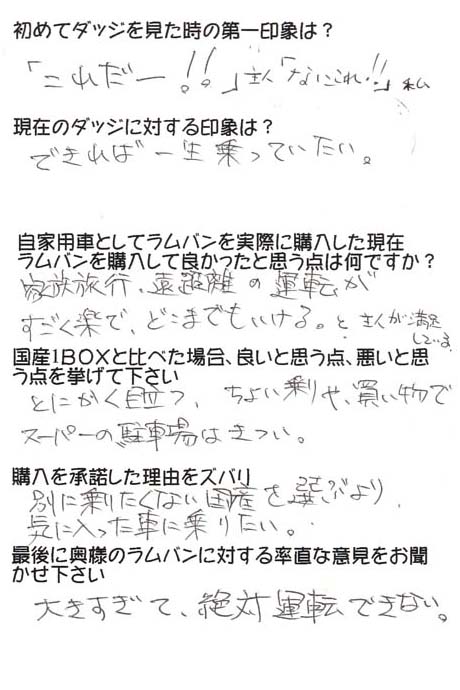 初めてダッジを見た時の第一印象は？
「これだー!!」主人「なにこれ!!」私
現在のダッジに対する印象は？
できれば一生乗っていたい。
自家用車としてラムバンを実際に購入した現在
ラムバンを購入して良かったと思う点は何ですか？
家族旅行、遠距離の運転が
すごく楽で、どこまでもいける。と主人が満足
している。
国産1BOXと比べた場合、良いと思う点、悪いと思
う点を挙げて下さい
とにかく目立つ、ちょい乗りや、買い物で
スーパーの駐車場はきつい。
購入を承諾した理由をズバリ
別に乗りたくない国産を選ぶより、
気に入った車に乗りたい。
最後に奥様のラムバンに対する率直な意見をお聞
かせ下さい
大きすぎて、絶対運転できない。